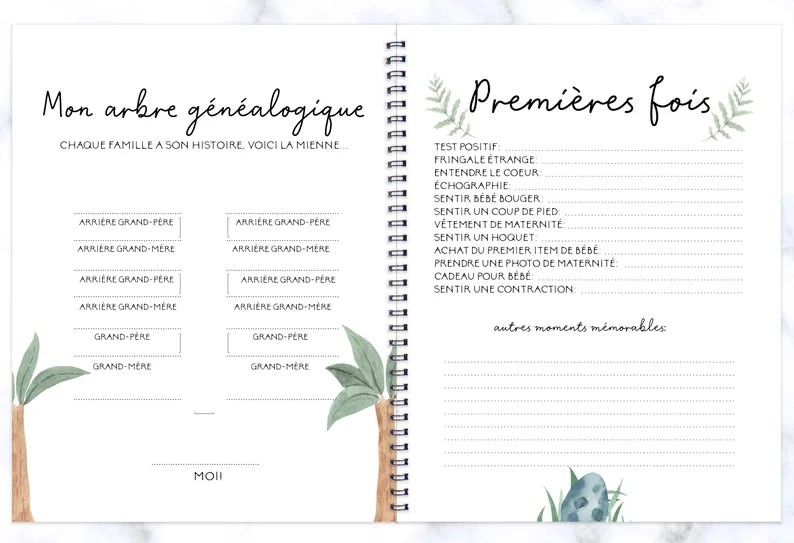 Mon arbre généalogique
CHAQUE FAMILLE A SON HISTOIRE, VOICI LA MIENNE...
ARRIÈRE GRAND-PÈRE
ARRIÈRE GRAND-MÈRE
ARRIÈRE GRAND-PÈRE
ARRIÈRE GRAND-MÈRE
GRAND-PÈRE
GRAND-MÈRE
ARRIÈRE GRAND-PÈRE
ARRIÈRE GRAND-MÈRE
ARRIÈRE GRAND-PÈRE
ARRIÈRE GRAND-MÈRE
GRAND-PÈRE
GRAND-MÈRE
MOI!
Premières fois
TEST POSITIF:
FRINGALE ÉTRANGE:
ENTENDRE LE COEUR:
ÉCHOGRAPHIE:
SENTIR BÉBÉ BOUGER:
SENTIR UN COUP DE PIED:
VÊTEMENT DE MATERNITÉ:
SENTIR UN HOQUET:
ACHAT DU PREMIER ITEM DE BÉBÉ:
PRENDRE UNE PHOTO DE MATERNITÉ:
CADEAU POUR BÉBÉ:
SENTIR UNE CONTRACTION:
autres moments mémorables: